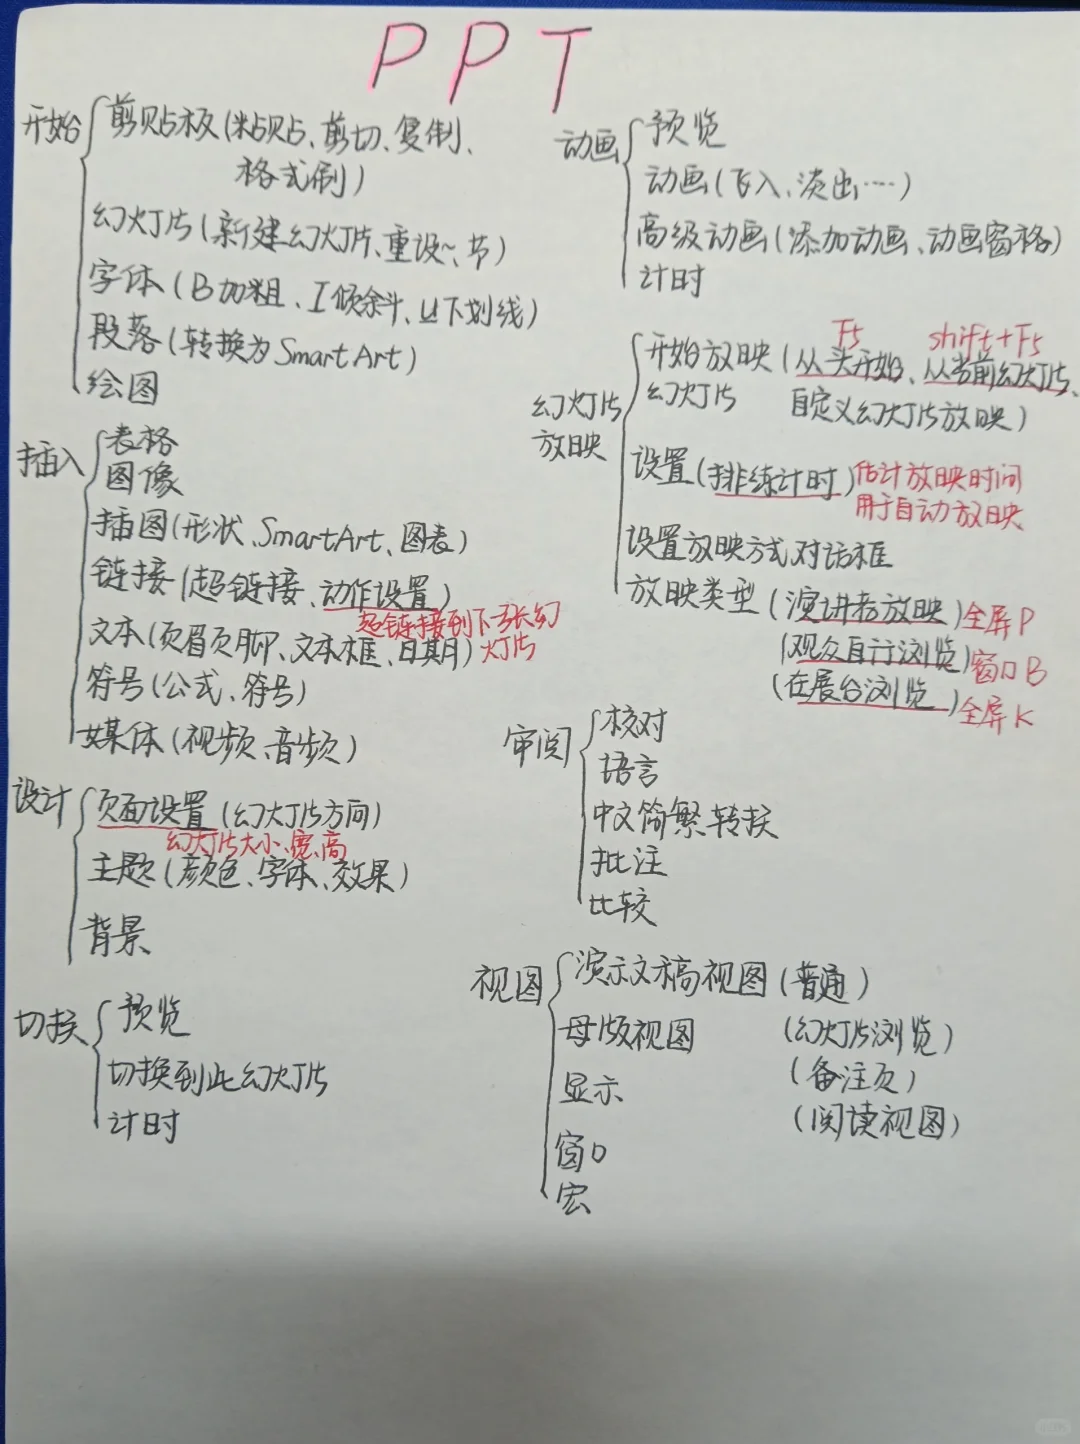 PPT
开始
剪贴板(粘贴、剪切、复制、
格式刷)
幻灯片(新建幻灯片、重设~、节)
字体(B加粗、I倾斜、U下划线)
段落(转换为SmartArt)
绘图
插入
表格
图像
插图(形状、SmartArt、图表)
链接(超链接、动作设置)
超链接到下一张幻
灯片
文本(页眉页脚、文本框、日期)
符号(公式、符号)
媒体(视频、音频)
设计
页面设置(幻灯片方向)
幻灯片大小、宽、高
主题(颜色、字体、效果)
背景
切换
预览
切换到此幻灯片
计时
动画
预览
动画(飞入、淡出……)
高级动画(添加动画、动画窗格)
计时
幻灯片
放映
F5 shift+F5
开始放映(从头开始、从当前幻灯片、
幻灯片 自定义幻灯片放映)
设置(排练计时)估计放映时间
用于自动放映
设置放映方式对话框
放映类型(演讲者放映)全屏P
(观众自行浏览)窗口B
(在展台浏览)全屏K
审阅
校对
语言
中文简繁转换
批注
比较
视图
演示文稿视图(普通)
母版视图 (幻灯片浏览)
显示 (备注页)
(阅读视图)
窗口
宏